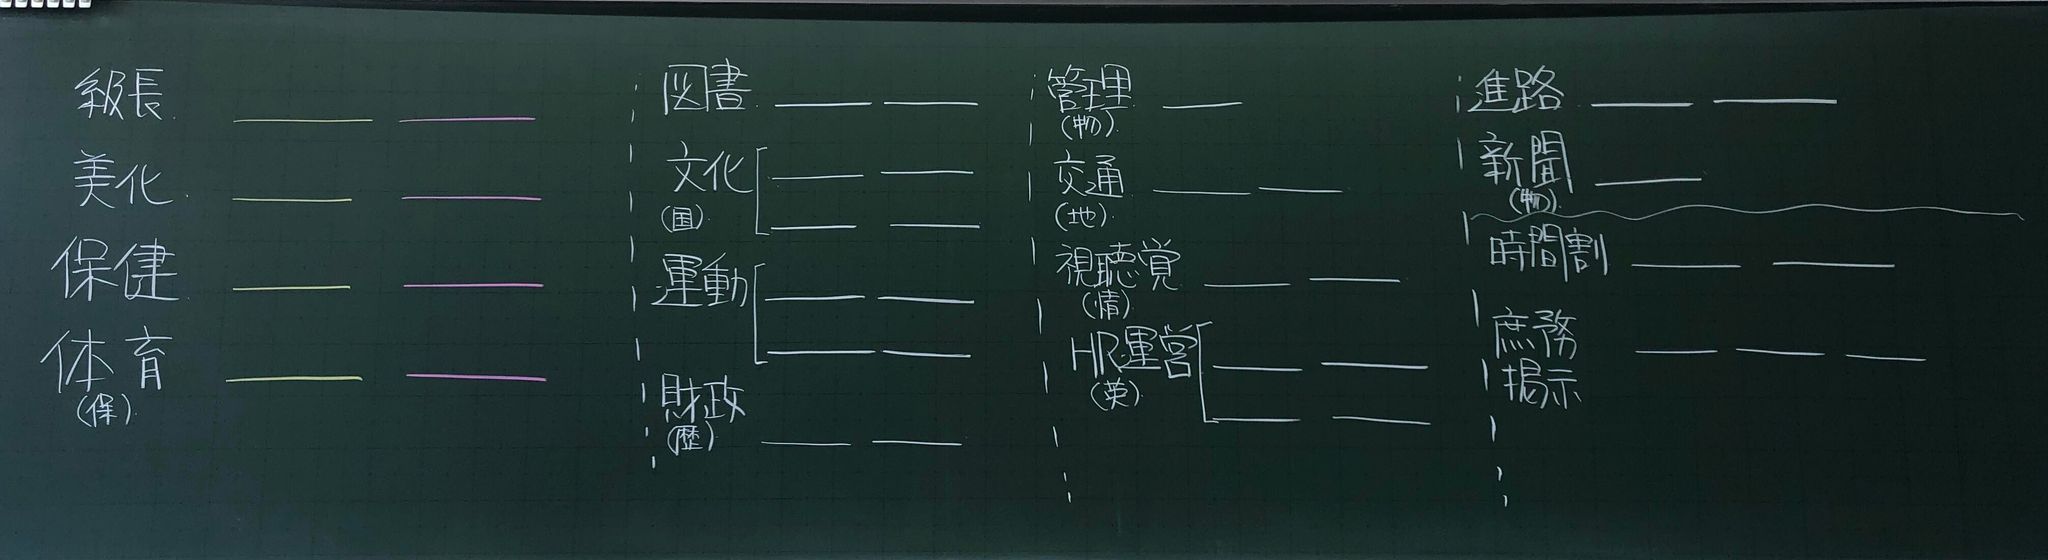 級長
美化
保健
体育
(保)
図書
文化
(国)
運動
財政
(歴)
管理
(物)
交通
(地)
視聴覚
(情)
HR運営
(英)
進路
新聞
(物)
時間割
庶務
掲示